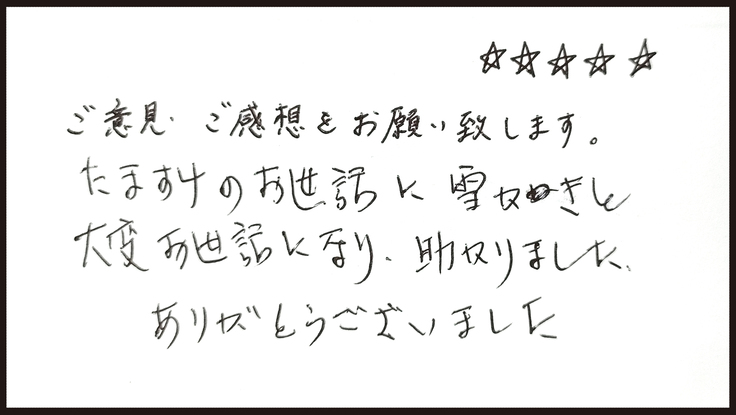 ☆☆☆☆☆
ご意見・ご感想をお願い致します。
たますけのお世話に雪かきと
大変お世話になり、助かりました。
ありがとうございました